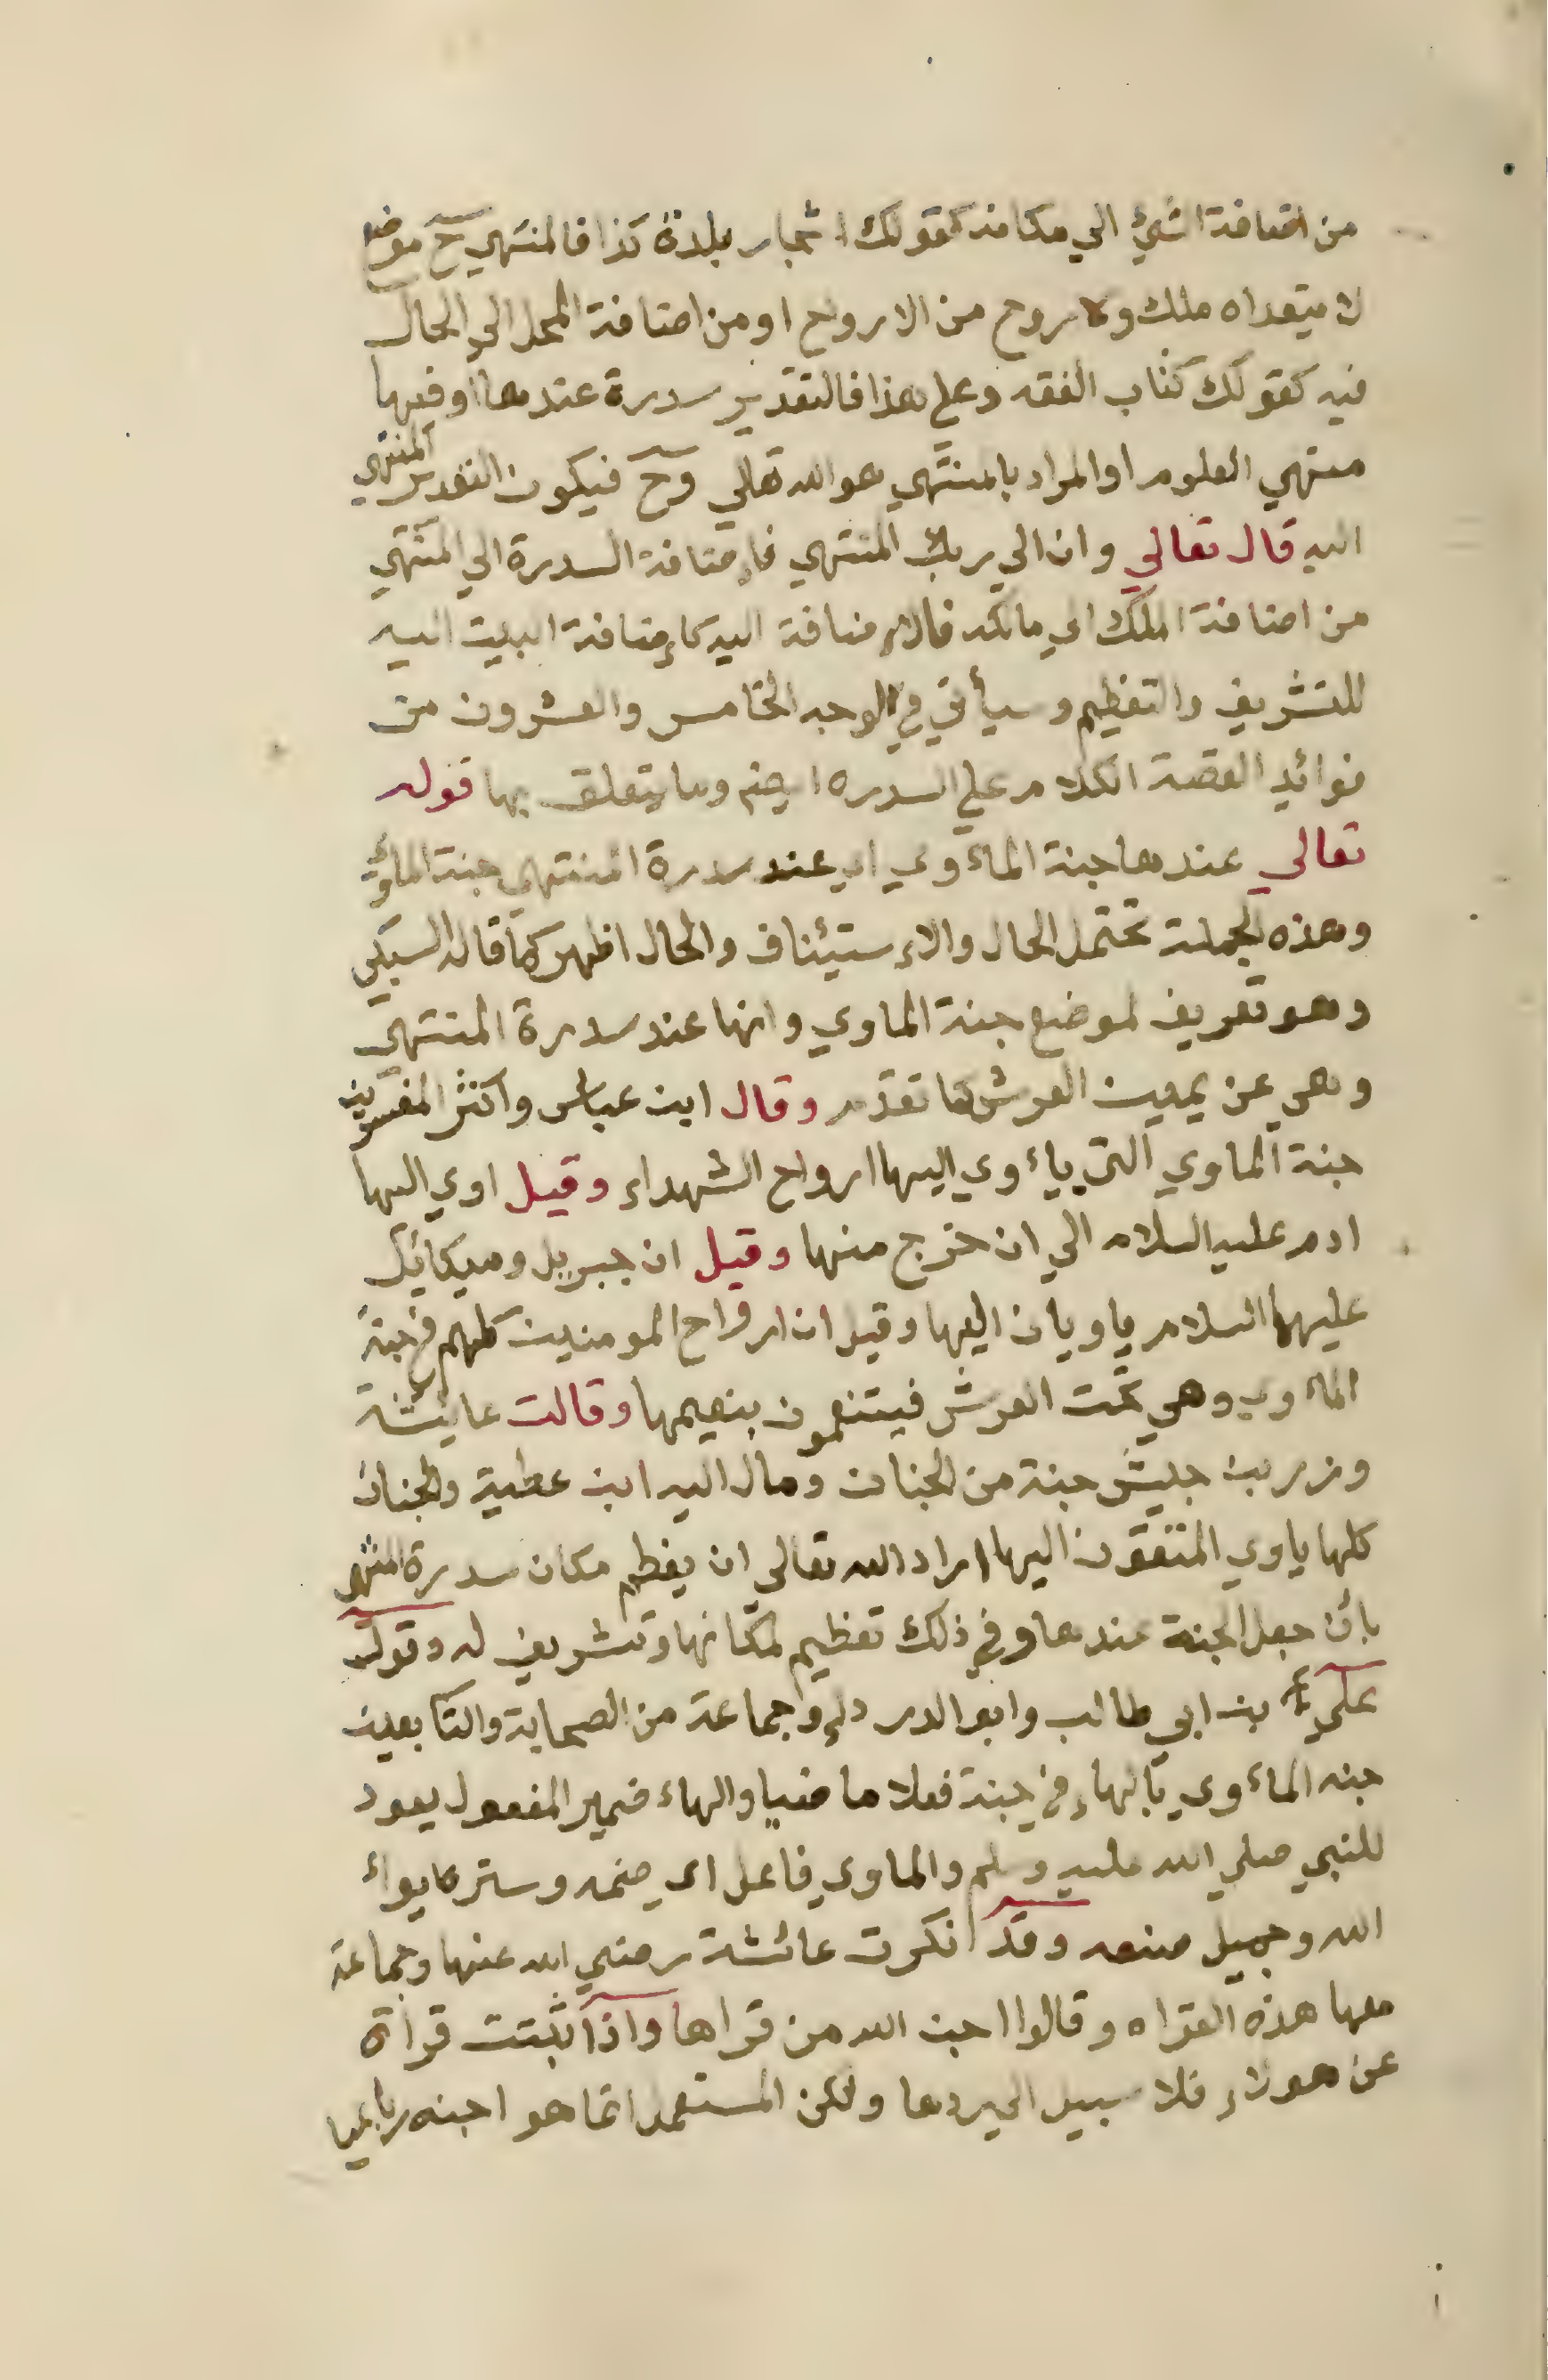 من اضافة الشيء الي مكانه كقولك اشجار بلدة كذا فالمنتهي ح موضع
لا يتعداه ملك ولا روح من الارواح او من اضافة المحل الي الحال
فيه كقولك كتاب الفقه وعلي هذا فالتقدير سدرة عندها او فيها
منتهي العلوم او المراد بالمنتهي هو الله تعالي وح فيكون التقدير المنتهي
اليه قال تعالي وان الي ربك المنتهي فاضافة السدرة الي المنتهي
من اضافة الملك الي مالكه فالاضافة اليه كاضافة البيت اليه
للتشريف والتعظيم وسيأتي في الوجه الخامس والعشرون من
فوائد القصة الكلام علي السدره ايضا وما يتعلق بها قوله
تعالي عندها جنة الماءوي اي عند سدرة المنتهي جنة المأوي
وهذه الجملة تحتمل الحال والاءستيئناف والحال اظهر كما قال السبكي
وهو تعريف لموضع جنة الماوي وانها عند سدرة المنتهي
وهي عن يمين العرش كما تقدم وقال ابن عباس واكثر المفسرين
جنة الماوي التي ياءوي اليها ارواح الشهداء وقيل اوي اليها
ادم عليه السلام الي ان خرج منها وقيل ان جبريل وميكائيل
عليهما السلام ياويان اليها وقيل ان ارواح المومنين كلهم في جنة
الماءوي وهي تحت العرش فيتنعمون بنعيمها وقالت عايشة
وزر بن حبيش جنة من الجنان ومال اليه ابن عطية والجنان
كلها ياوي المتقون اليها اراد الله تعالي ان يعظم مكان سدرة المنتهي
بان جعل الجنة عندها وفي ذلك تعظيم لمكانها وتشريف له وقول
علي بن ابي طالب وابو الدرداء وجماعة من الصحابة والتابعين
جنه الماءوي بالهاء في جنة فعلا ماضيا والهاء ضمير المفعول يعود
للنبي صلي الله عليه وسلم والماوي فاعل اي ضمه وستره ايواء
الله وجميل صنعه وقد انكرت عائشة رضي الله عنها وجماعة
معها هذه القراه وقالوا اجن الله من قراها واذا ثبتت قراة
عن هولاء فلا سبيل الي ردها ولكن المستعمل انما هو اجنه رباعيا